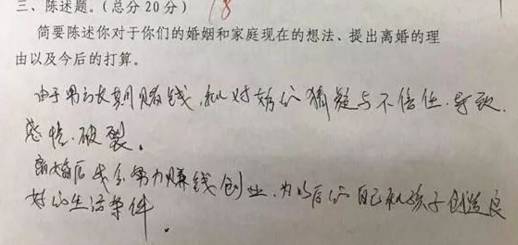 三、陈述题。(总分20分) 18
简要陈述你对于你们的婚姻和家庭现在的想法、提出离婚的理
由以及今后的打算。
由于男方长期赌钱,和对妨的猜疑与不信任.导致.
感情.破裂。
离婚后我会努力赚钱创业.为以后的自己和孩子创造良
好的生活条件.